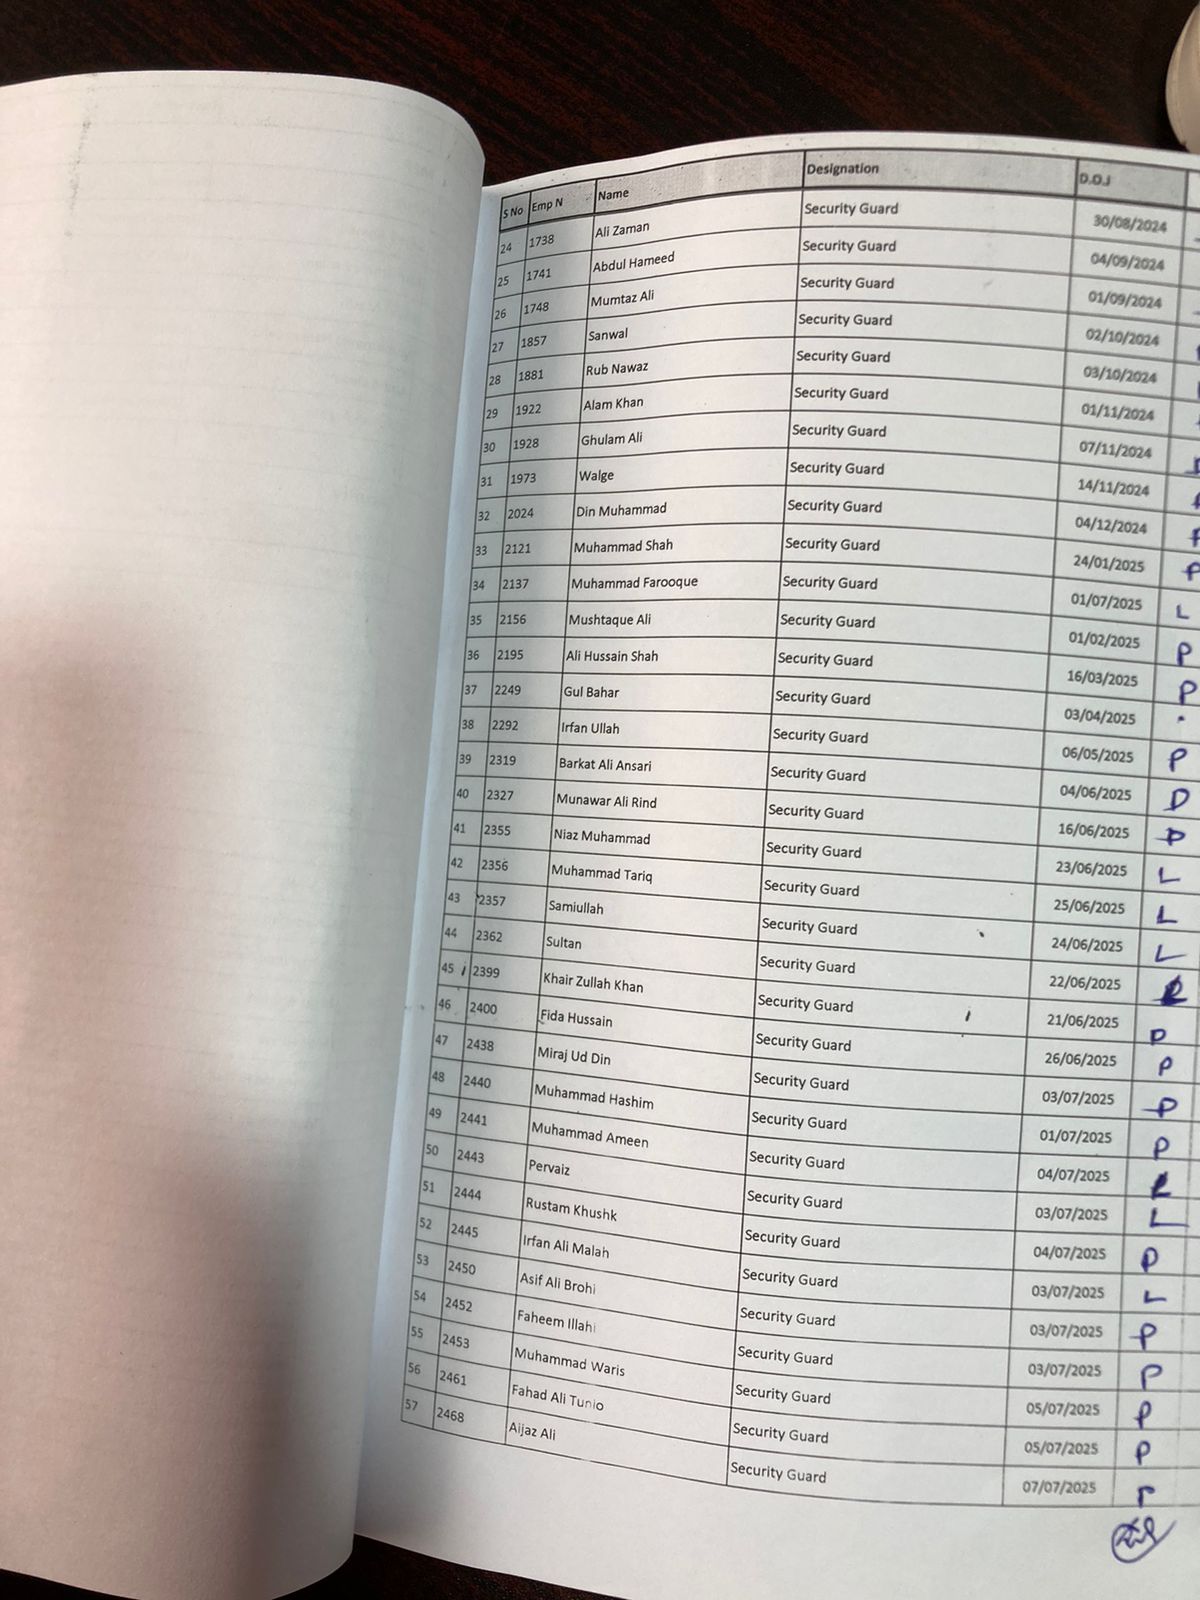 S No Emp N Name Designation D.O.J
24 1738 Ali Zaman Security Guard 30/08/2024
25 1741 Abdul Hameed Security Guard 04/09/2024
26 1748 Mumtaz Ali Security Guard 01/09/2024
27 1857 Sanwal Security Guard 02/10/2024
28 1881 Rub Nawaz Security Guard 03/10/2024
29 1922 Alam Khan Security Guard 01/11/2024
30 1928 Ghulam Ali Security Guard 07/11/2024
31 1973 Walge Security Guard 14/11/2024
32 2024 Din Muhammad Security Guard 04/12/2024
33 2121 Muhammad Shah Security Guard 24/01/2025 P
34 2137 Muhammad Farooque Security Guard 01/07/2025 L
35 2156 Mushtaque Ali Security Guard 01/02/2025 P
36 2195 Ali Hussain Shah Security Guard 16/03/2025 P
37 2249 Gul Bahar Security Guard 03/04/2025
38 2292 Irfan Ullah Security Guard 06/05/2025 P
39 2319 Barkat Ali Ansari Security Guard 04/06/2025 P
40 2327 Munawar Ali Rind Security Guard 16/06/2025 P
41 2355 Niaz Muhammad Security Guard 23/06/2025 L
42 2356 Muhammad Tariq Security Guard 25/06/2025 L
43 2357 Samiullah Security Guard 24/06/2025 L
44 2362 Sultan Security Guard 22/06/2025
45 2399 Khair Zullah Khan Security Guard 21/06/2025 P
46 2400 Fida Hussain Security Guard 26/06/2025 P
47 2438 Miraj Ud Din Security Guard 03/07/2025 P
48 2440 Muhammad Hashim Security Guard 01/07/2025 P
49 2441 Muhammad Ameen Security Guard 04/07/2025
50 2443 Pervaiz Security Guard 03/07/2025 L
51 2444 Rustam Khushk Security Guard 04/07/2025 P
52 2445 Irfan Ali Malah Security Guard 03/07/2025 L
53 2450 Asif Ali Brohi Security Guard 03/07/2025 P
54 2452 Faheem Illahi Security Guard 03/07/2025 P
55 2453 Muhammad Waris Security Guard 05/07/2025 P
56 2461 Fahad Ali Tunio Security Guard 05/07/2025 P
57 2468 Aijaz Ali Security Guard 07/07/2025